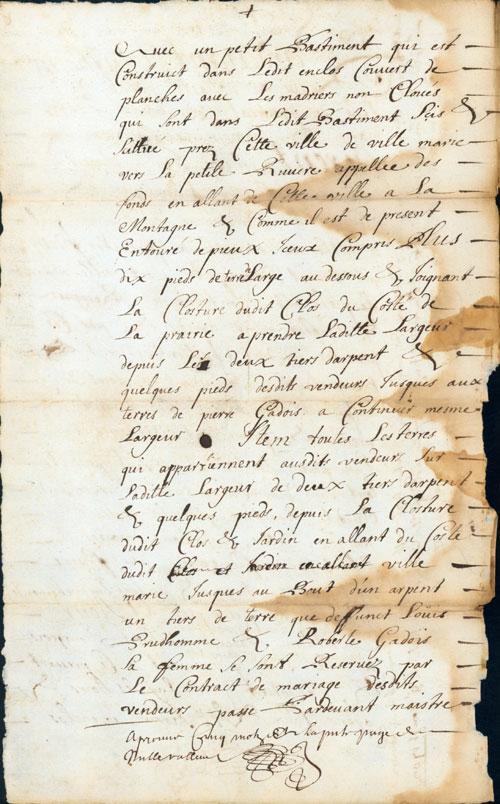 Avec un petit Bastiment qui est
Construict dans Ledit enclos Couvert de
planches avec Les madriers non Cloues
qui sont dans Ledit Bastiment Scis &
scittue prez Cette ville de ville marie
vers La petite Riviere appellee des
fonds en allant de Cette ville a La
Montagne & Comme il est de present
Entouré de pieux Iceux Compris Plus
dix pieds de terre Large au dessous & Joignant
La Closture dudit Clos du Costé de
La prairie a prendre Ladille Largeur
depuis Les deux tiers darpent &
quelques pieds desdits vendeurs Jusques aux
terres de pierre Gadois a Continuer mesme
Largeur Item toutes Les terres
qui appartiennent ausdits vendeurs sur
Ladille Largeur de deux tiers darpent
& quelques pieds, depuis La Closture
dudit Clos & Jardin en allant du Costé
dudit Clos et Jardin en allant ville
marie Jusques au Bout d'un arpent
un tiers de terre que deffunct Louis
Prudhomme & Roberte Gadois
sa femme se sont Reservez par
Le Contract de mariage desdits
vendeurs passe Pardevant maistre
Cinq mots la page
Nulle valleur